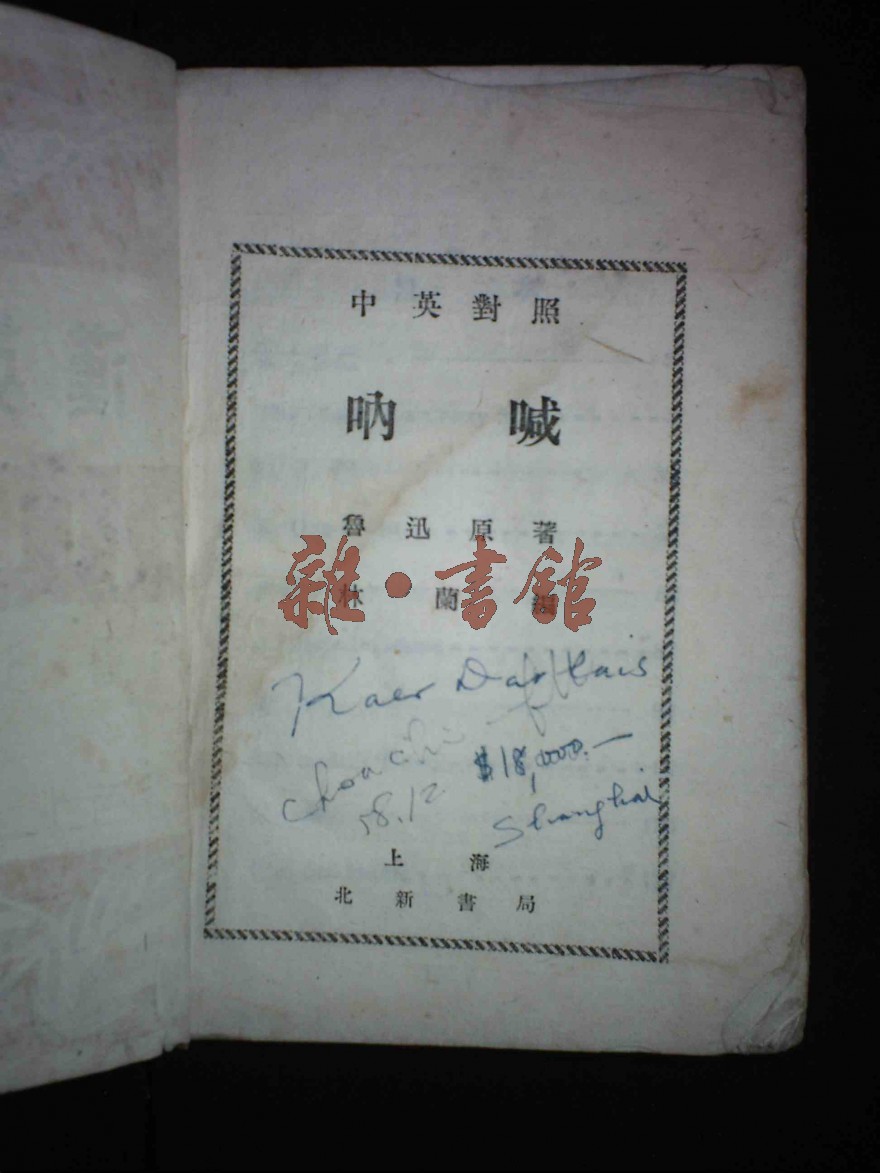 中英對照
吶喊
魯迅原著
雜·書館
林蘭編
$18,000.—
58.12
Shanghai
上海
北新書局